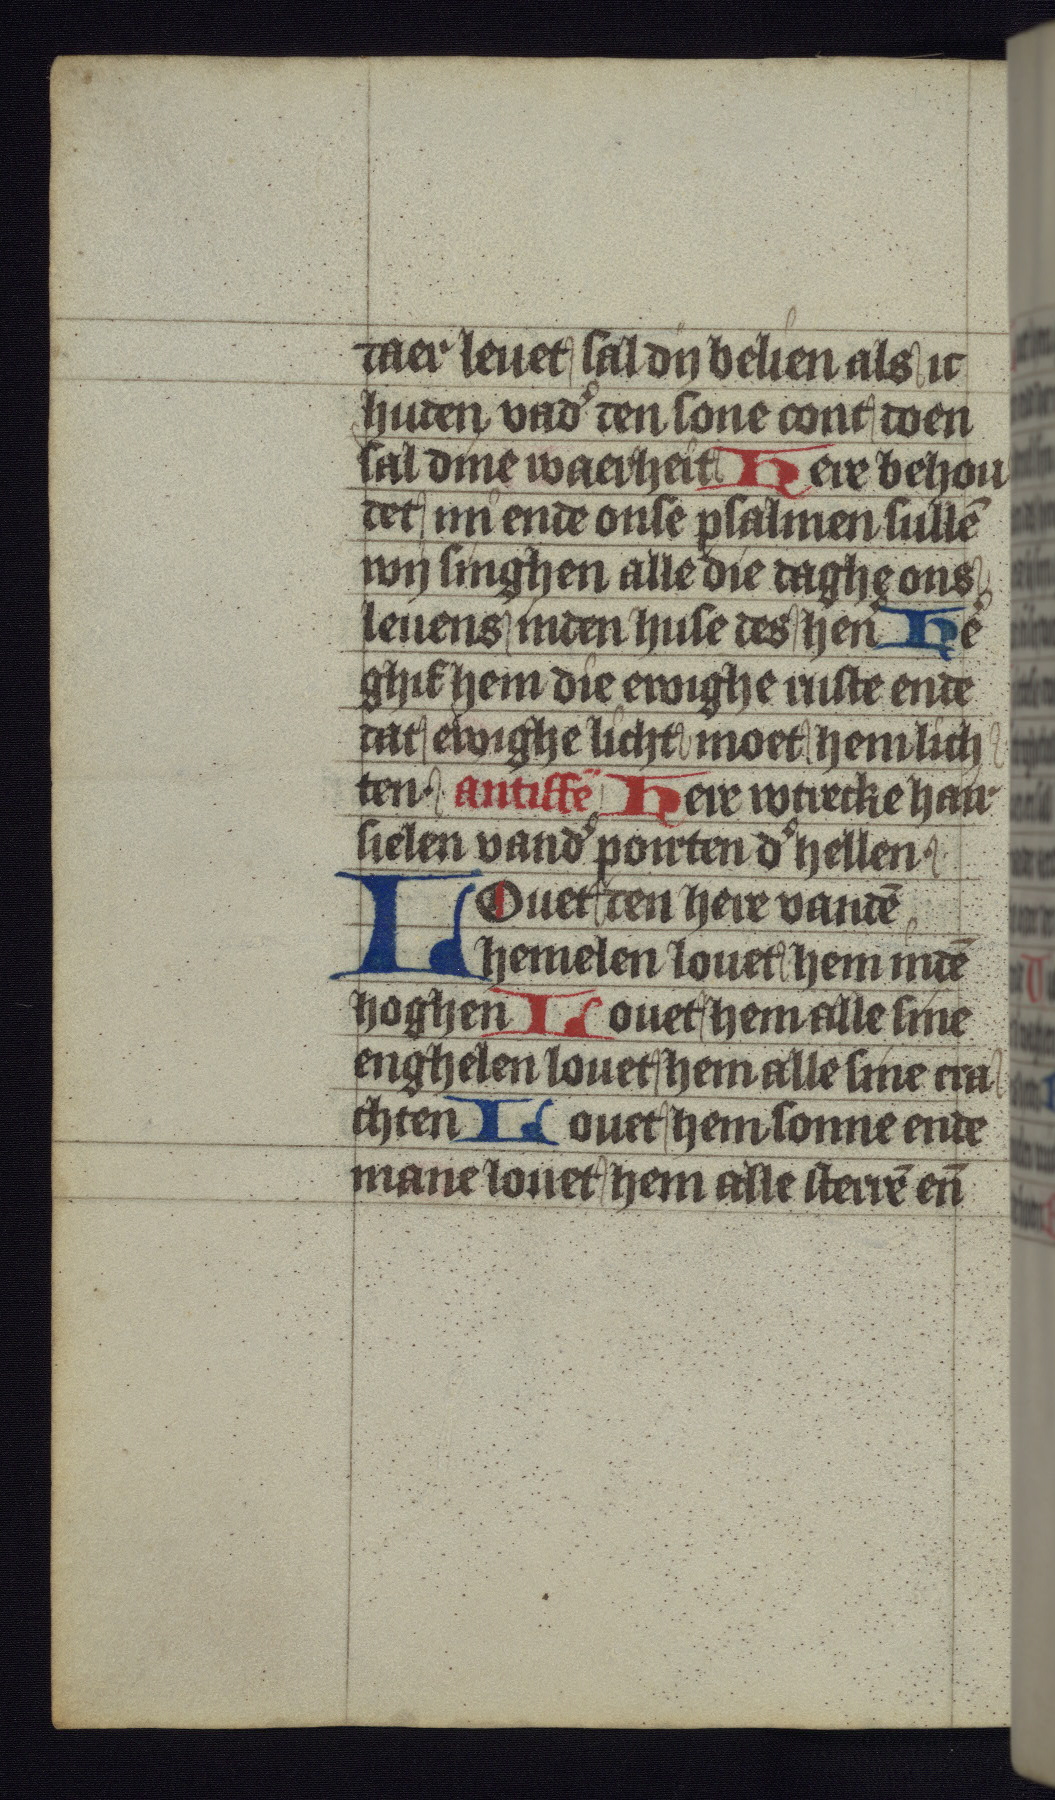 daer leuet sal dÿ belien als ic
huden vad' den sone cont doen
sal dine waerheit Here behou
det mi ende onse psalmen sullē
wÿ singhen alle die daghe ons
leuens inden huse des hen' Hē'
ghif hem die ewighe ruste ende
dat ewighe licht moet hem lich
ten. antiffē Here wtrecke haer
sielen vand' poirten d' hellen.
LOuet den here vandē
hemelen louet hem indē
hoghen Louet hem alle sine
enghelen louet hem alle sine cra
chten Louet hem sonne ende
mane louet hem alle sterrē eñ